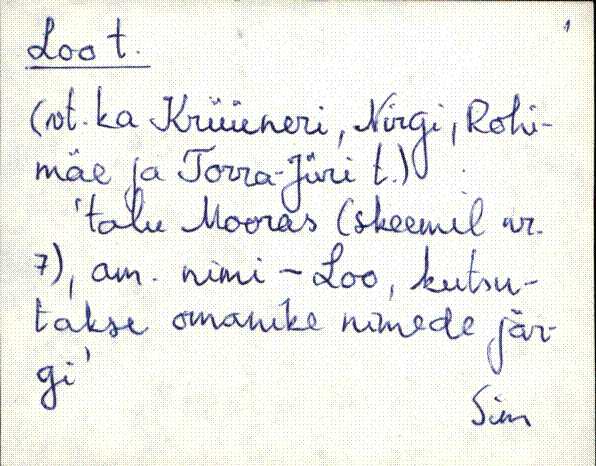 1
Loo t.
(vt. ka Krüüneri, Nirgi, Rohi-
mäe ja Torra-Jüri t.)
'talu Mooras (skeemil nr.
7), am. nimi – Loo, kutsu-
takse omanike nimede jär-
gi'
Sim